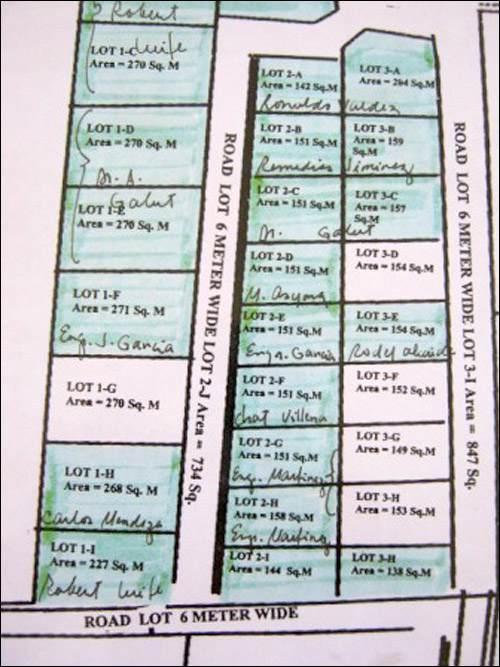 Robert
LOT 1-C
Area = 270 Sq. M
LOT 1-D
Area = 270 Sq. M
M. A.
Galut
LOT 1-E
Area = 270 Sq. M
LOT 1-F
Area = 271 Sq. M
Eng. J. Garcia
LOT 1-G
Area = 270 Sq. M
LOT 1-H
Area = 268 Sq. M
Carlos Mendoza
LOT 1-I
Area = 227 Sq. M
Robert
ROAD LOT 6 METER WIDE LOT 2-J Area = 734 Sq.
LOT 2-A
Area = 142 Sq. M
Ronaldo Valdez
LOT 2-B
Area = 151 Sq. M
Remedias Jiminez
LOT 2-C
Area = 151 Sq. M
M. Galut
LOT 2-D
Area = 151 Sq. M
LOT 2-E
Area = 151 Sq. M
Garcia
LOT 2-F
Area = 151 Sq. M
Chat Villena
LOT 2-G
Area = 151 Sq. M
Eng. Martinez
LOT 2-H
Area = 158 Sq. M
Eng. Martinez
LOT 2-I
Area = 144 Sq.M
LOT 3-A
Area = 264 Sq. M
LOT 3-B
Area = 159
Sq.M
LOT 3-C
Area = 157
Sq.M
LOT 3-D
Area = 154 Sq.M
LOT 3-E
Area = 154 Sq.M
Rodel
LOT 3-F
Area = 152 Sq.M
LOT 3-G
Area = 149 Sq.M
LOT 3-H
Area = 153 Sq.M
LOT 3-H
Area = 138 Sq.M
ROAD LOT 6 METER WIDE LOT 3-I Area = 847 Sq.
ROAD LOT 6 METER WIDE